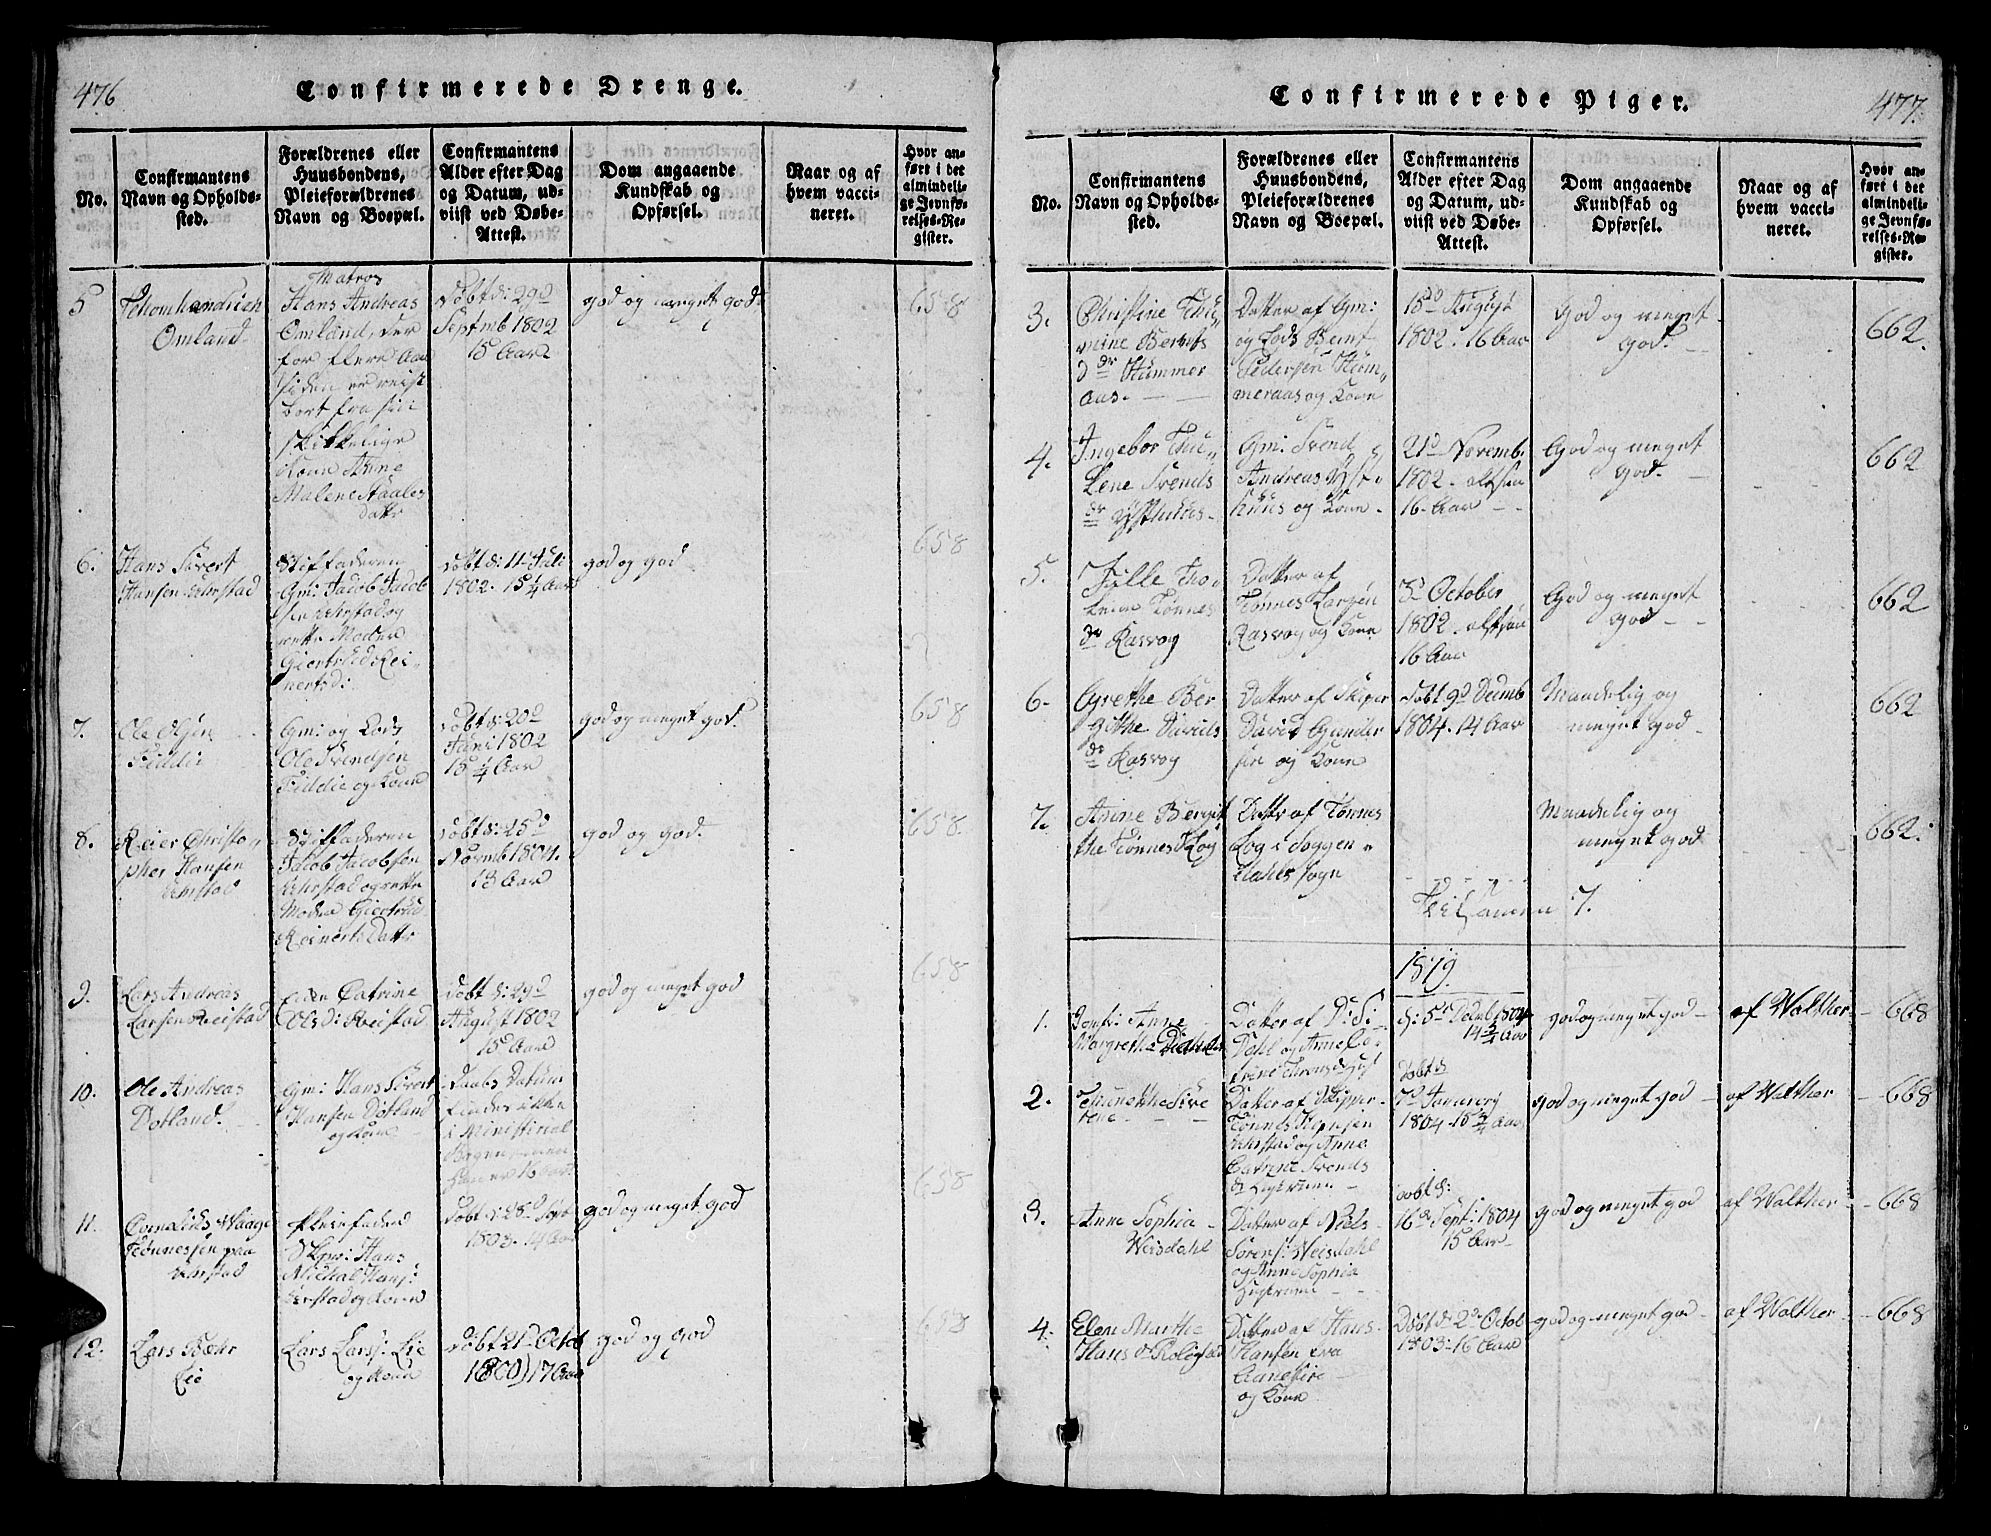 476
Confirmerede Drenge.
No.
Confirmantens
Navn og Opholds-
sted.
Forældrenes eller
Huusbondens,
Pleieforældrenes
Navn og Boepæl.
Confirmantens
Alder efter Dag
og Datum, ud-
viist ved Døbe-
Attest.
Dom angaaende
Kundskab og
Opførsel.
Naar og af
hvem vacci-
neret.
Hvor an-
ført i det
almindeli-
ge Jevnfø-
relses-Re-
gister.
5
Omland
Matros
Hans Andreas
Omland, der
for flere Aar
siden er reist
bort fra sin
skikkelige
Kone Anne
Malene Staales
datr
døbt d: 29d
Septmb 1802
15 Aar
god og meget god.
658
6.
Hans Sivert
Hansen Ahrstad
Stiffaderen
Gm: Jacob Jacob
sen Ahrstad og
rette Moder
Giertrud Rei,
nertsd:
døbt d: 11 Juli
1802. 15 1/4 Aar
god og god
658
7.
Ole Olsen
Fiddie
Gm: og Lods
Ole Svendsen
Fiddie og Kone
døbt d: 20d
Juni 1802
15 1/4 Aar
god og meget god.
658
8.
Reier Christo,
pher Hansen
Ahrstad
Stiffaderen
Jacob Jacobsen
Ahrstad og rette
Moder Giertrud
Reinerts Datr
døbt d: 25d
Novmb 1804.
13 Aar
god og god.
658
9.
Lars Andreas
Larsen Reistad
Enken Catrine
Olsd: Reistad
døbt d: 29d
August 1802
15 Aar
god og meget god
658
10.
Ole Andreas
Dotland.
Gm: Hans Sivert
Hansen Dotland
og Kone
Daabs Datum
findes ikke
i Ministrial
Bogen, men
han er 16 Aar
11.
Cornelius Waage
Tønnesen paa
Ahrstad
Pleiefader
Skpr: Hans
Michal Hans:
Ahrstad og Kone
døbt d: 28d Sept
1803. 14 Aar
god og meget god
658
12.
Lars Bæhr
Lie
Lars Lars: Lie
og Kone
døbt 21d Octob
1800) 17 Aar
god og god
658
477.
Confirmerede Piger.
No.
Confirmantens
Navn og Opholds-
sted.
Forældrenes eller
Huusbondens,
Pleieforældrenes
Navn og Boepæl.
Confirmantens
Alder efter Dag
og Datum, ud-
viist ved Døbe-
Attest.
Dom angaaende
Kundskab og
Opførsel.
Naar og af
hvem vacci-
neret.
Hvor an-
ført i det
almindeli-
ge Jevnfø-
relses-Re-
gister.
3.
Christine Thu,,
mine Bernts
dr Hummer
aas.
Datter af Gm:
og Lods Bernt
Pedersen Hum,,
meraas og Kone
15d August
1802. 16 Aar
God og meget
God.
662.
4.
Ingebor Thu,,
Lene Svends
dr Ysthuus
Gm: Svend
Andreas Yst,
huus og Kone.
21d Novemb.
1802. altsaa
16 Aar
God og meget
god.
662
5.
Tønnes
dr Rasvog
Datter af
Tønnes Larsen
Rasvog og Kone
3d October
1802. altsaa
16 Aar
God og meget
god
662
6.
Grethe Ber
githe Davids
dr Rasvog
Datter af Skiper
David Gunder
sen og Kone
døbt 9d Decmb
1804. 14 Aar
Maadelig og
meget god
662
7.
Anne Bergit
the Tønnesd Log
Datter af Tønnes
Log i Soggen,
dahls Sogn
Maadelig og
meget god
662.
Tilsammen 7.
1819.
1.
Jomfr: Anne
Margrethe Diahl
Datter af D: Si
Dahl og Anne Ca,
trine
d: 5d Decmb 1804
14 3/4 Aar
god og meget god
af Walther
668
2.
Tennethe Sire
rene
Datter af Skipper
Tønnes
Ahrstad og Anne
Catrine Svends
dr Hustrue
døbt d
7d Januarij
1804. 15 3/4 Aar
god og meget god
af Walther
668
3.
Anne Sophia
Veisdahl
Datter af Niels
Sørens: Veisdahl
og Anne Sophia
Hustrue
døbt d:
16d Sept: 1804
15 Aar
god og meget god
af Walther
668
4.
Elen Marthe
Hans dr Roligstad
Datter af Hans
Hansen fra
Aanesire
og Kone
Døbt d: 2d Octob
1803. 16 Aar
god og meget god
af Walther
668